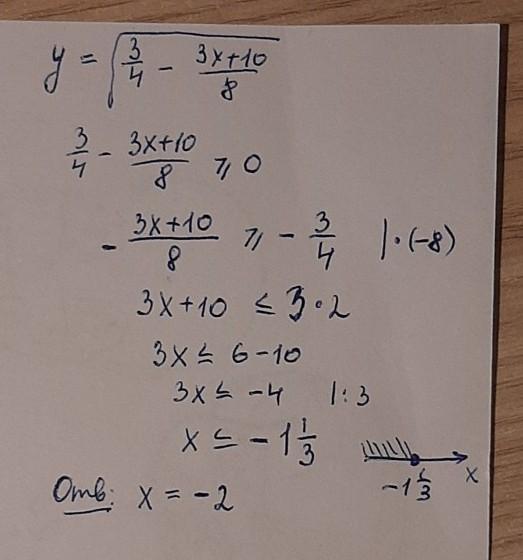 y = √(3/4 - (3x+10)/8)
3/4 - (3x+10)/8 ⩾ 0
- (3x+10)/8 ⩾ - 3/4 | · (-8)
3x+10 ≤ 3 · 2
3x ≤ 6-10
3x ≤ -4 | : 3
x ≤ - 1 1/3
-1 1/3 x
Отв: x = -2